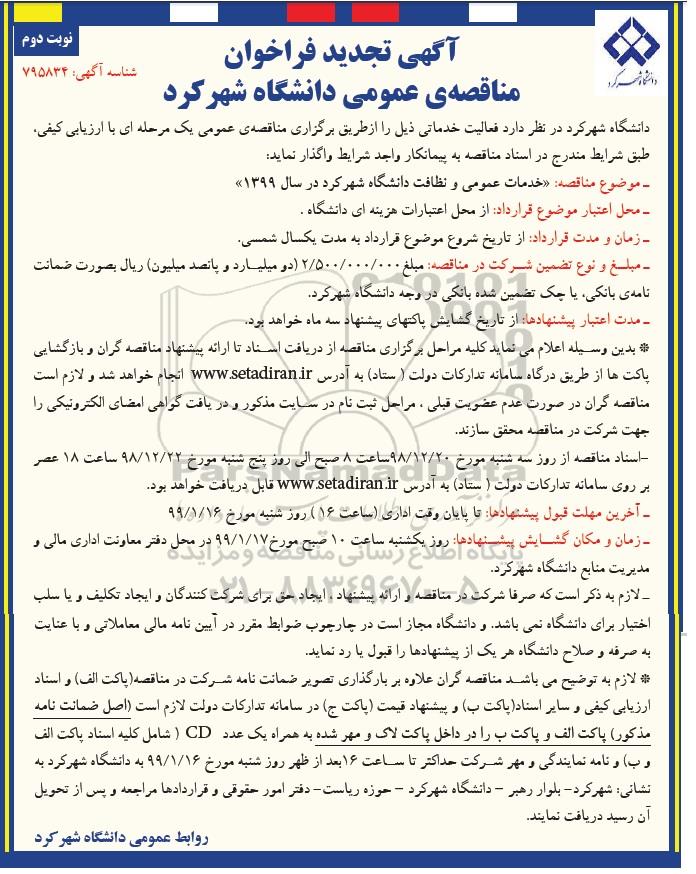 نوبت دوم
شناسه آگهی: ۷۹۵۸۳۴
دانشگاه شهرکرد
آگهی تجدید فراخوان
مناقصه‌ی عمومی دانشگاه شهرکرد
دانشگاه شهرکرد در نظر دارد فعالیت خدماتی ذیل را ازطریق برگزاری مناقصه‌ی عمومی یک مرحله ای با ارزیابی کیفی،
طبق شرایط مندرج در اسناد مناقصه به پیمانکار واجد شرایط واگذار نماید:
ـ موضوع مناقصه: «خدمات عمومی و نظافت دانشگاه شهرکرد در سال ۱۳۹۹»
ـ محل اعتبار موضوع قرارداد: از محل اعتبارات هزینه ای دانشگاه .
ـ زمان و مدت قرارداد: از تاریخ شروع موضوع قرارداد به مدت یکسال شمسی.
ـ مبلغ و نوع تضمین شرکت در مناقصه: مبلغ ۲/۵۰۰/۰۰۰/۰۰۰ (دو میلیارد و پانصد میلیون) ریال بصورت ضمانت
نامه‌ی بانکی، یا چک تضمین شده بانکی در وجه دانشگاه شهرکرد.
ـ مدت اعتبار پیشنهادها: از تاریخ گشایش پاکتهای پیشنهاد سه ماه خواهد بود.
* بدین وسیله اعلام می نماید کلیه مراحل برگزاری مناقصه از دریافت اسناد تا ارائه پیشنهاد مناقصه گران و بازگشایی
پاکت ها از طریق درگاه سامانه تدارکات دولت ( ستاد) به آدرس www.setadiran.ir انجام خواهد شد و لازم است
مناقصه گران در صورت عدم عضویت قبلی ، مراحل ثبت نام در سایت مذکور و در یافت گواهی امضای الکترونیکی را
جهت شرکت در مناقصه محقق سازند.
-اسناد مناقصه از روز سه شنبه مورخ ۹۸/۱۲/۲۰ساعت ۸ صبح الی روز پنج شنبه مورخ ۹۸/۱۲/۲۲ ساعت ۱۸ عصر
بر روی سامانه تدارکات دولت ( ستاد) به آدرس www.setadiran.ir قابل دریافت خواهد بود.
ـ آخرین مهلت قبول پیشنهادها: تا پایان وقت اداری (ساعت ۱۶ ) روز شنبه مورخ ۹۹/۱/۱۶
ـ زمان و مکان گشایش پیشنهادها: روز یکشنبه ساعت ۱۰ صبح مورخ۹۹/۱/۱۷ در محل دفتر معاونت اداری مالی و
مدیریت منابع دانشگاه شهرکرد.
ـ لازم به ذکر است که صرفا شرکت در مناقصه و ارائه پیشنهاد ، ایجاد حق برای شرکت کنندگان و ایجاد تکلیف و یا سلب
اختیار برای دانشگاه نمی باشد. و دانشگاه مجاز است در چارچوب ضوابط مقرر در آیین نامه مالی معاملاتی و با عنایت
به صرفه و صلاح دانشگاه هر یک از پیشنهادها را قبول یا رد نماید.
* لازم به توضیح می باشد مناقصه گران علاوه بر بارگذاری تصویر ضمانت نامه شرکت در مناقصه(پاکت الف) و اسناد
ارزیابی کیفی و سایر اسناد(پاکت ب) و پیشنهاد قیمت (پاکت ج) در سامانه تدارکات دولت لازم است (اصل ضمانت نامه
مذکور) پاکت الف و پاکت ب را در داخل پاکت لاک و مهر شده به همراه یک عدد CD ( شامل کلیه اسناد پاکت الف
و ب) و نامه نمایندگی و مهر شرکت حداکثر تا ساعت ۱۶بعد از ظهر روز شنبه مورخ ۹۹/۱/۱۶ به دانشگاه شهرکرد به
نشانی: شهرکرد- بلوار رهبر – دانشگاه شهرکرد – حوزه ریاست- دفتر امور حقوقی و قراردادها مراجعه و پس از تحویل
آن رسید دریافت نمایند.
روابط عمومی دانشگاه شهرکرد
ParsNamadData
پایگاه اطلاع رسانی مناقصه و مزایده
۰۲۱-۸۸۳۴۹۶۷۰-۵